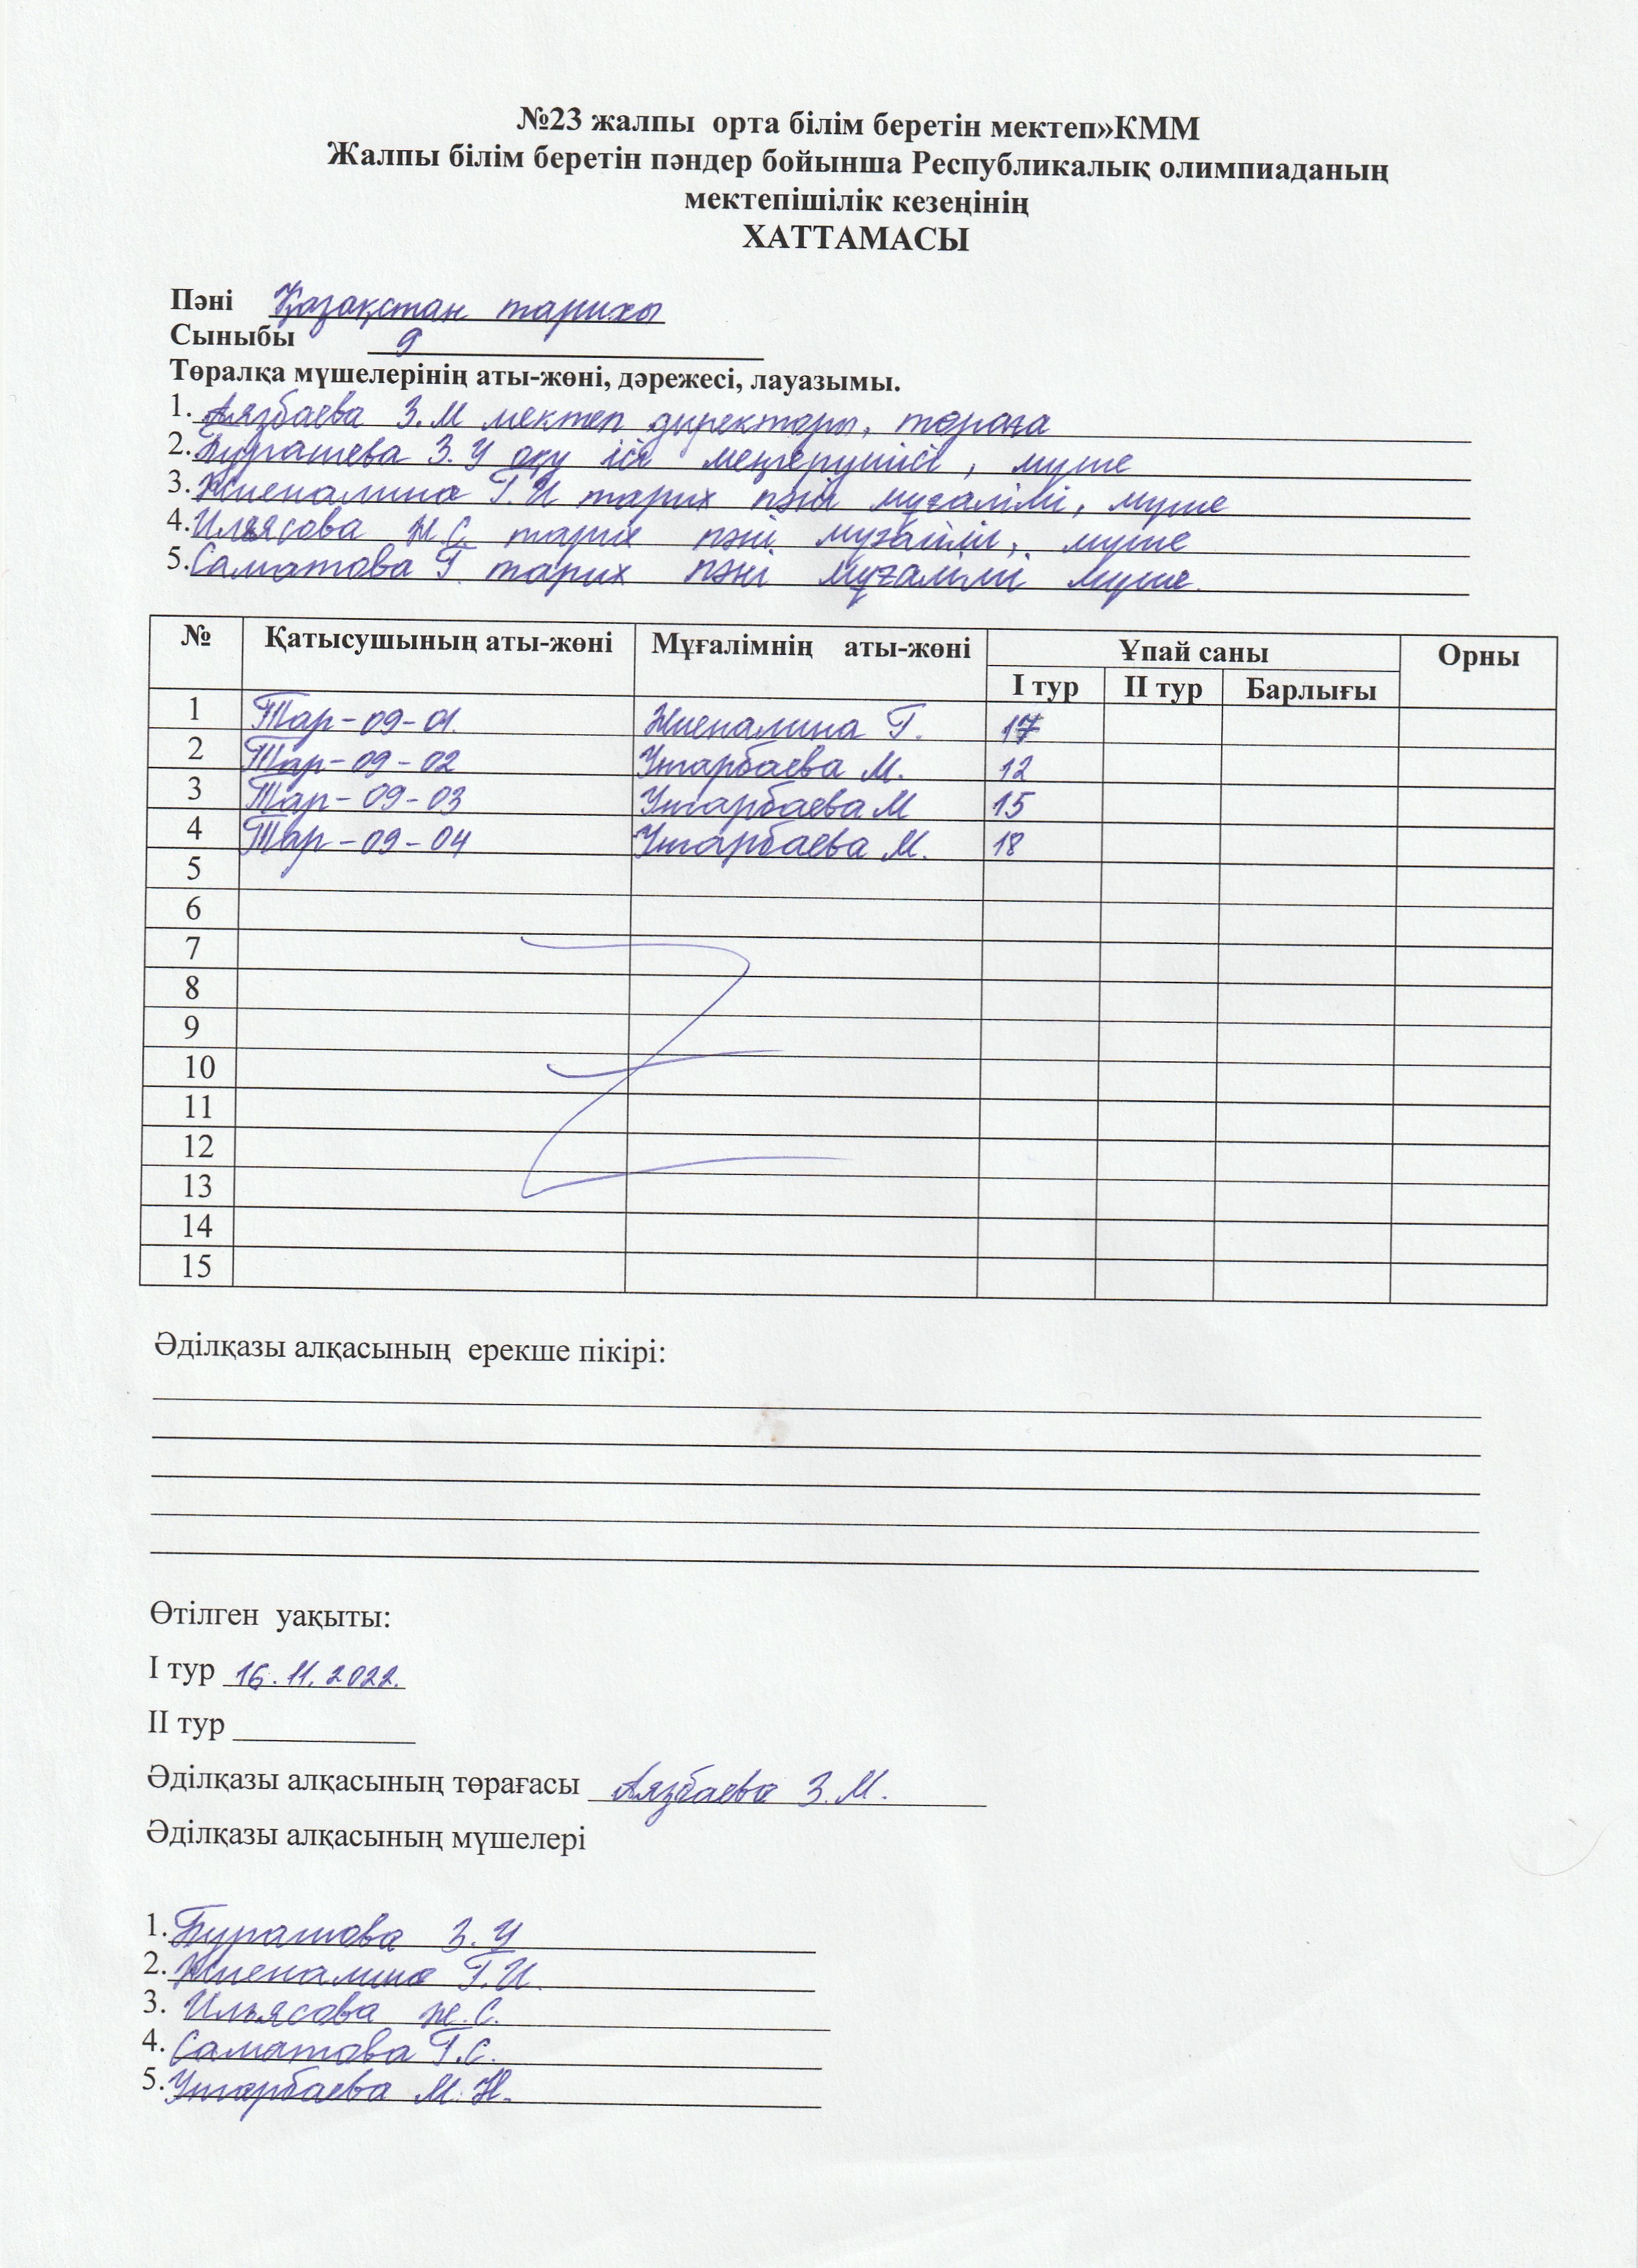 №23 жалпы орта білім беретін мектеп»КММ
Жалпы білім беретін пәндер бойынша Республикалық олимпиаданың
мектепішілік кезеңінің
ХАТТАМАСЫ
Пәні Қазақстан тарихы
Сыныбы 9
Төралқа мүшелерінің аты-жөні, дәрежесі, лауазымы.
1. Аязбаева З.М мектеп директоры, төраға
2. Бурашева З.У оқу ісі меңгерушісі, мүше
3. Жиеналина Г.И тарих пәні мұғалімі, мүше
4. Ильясова Ж.С тарих пәні мұғалімі, мүше
5. Саматова Г. тарих пәні мұғалімі мүше.
№ Қатысушының аты-жөні Мұғалімнің аты-жөні Ұпай саны Орны
I тур II тур Барлығы
1 Тар-09-01. Жиеналина Г. 17
2 Тар-09-02 Утарбаева М. 12
3 Тар-09-03 Утарбаева М 15
4 Тар-09-04 Утарбаева М. 18
5
6
7
8
9
10
11
12
13
14
15
Әділқазы алқасының ерекше пікірі:
Өтілген уақыты:
I тур 16.11.2022.
II тур
Әділқазы алқасының төрағасы Аязбаева З.М.
Әділқазы алқасының мүшелері
1. Бурашова З.У
2. Жиеналина Г.И.
3. Ильясова Ж.С.
4. Саматова Г.С.
5. Утарбаева М.Н.